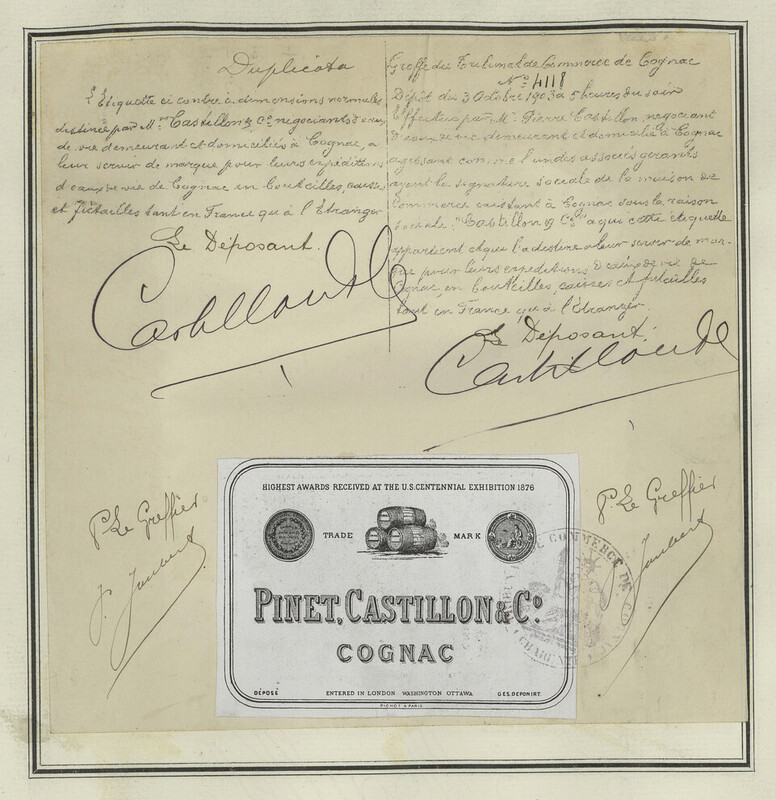 Duplicata
L'Etiquette ci contre à dimensions normales
distinée par M.rs Castillon & Co. negociants d'eau
de vie demeurant et domiciliés à Cognac, a
leur servir de marque pour leurs expéditions
d'eaux de vie de Cognac en bouteilles, caisses
et futailles tant en France qu'à l'Etranger
Le Déposant.
Castillon & Co
Greffe du Tribunal de Commerce de Cognac
No 4118
Dépôt du 3 Octobre 1903 à 5 heures du soir
Effectué par M. Pierre Castillon negociant
d'eaux de vie demeurant et domicilié à Cognac
agissant comme l'un des associés gérants
ayant la signature sociale de la maison de
Commerce existant à Cognac sous la raison
sociale: "Castillon & Co" a qui cette étiquette
appartient et qui l'a destine a leur servir de mar-
que pour leurs expéditions d'eaux de vie de
Cognac en bouteilles, caisses et futailles
tant en France qu'à l'Etranger.
Le Déposant.
Castillon & Co
P. Le Greffier
J. Joubert
P. Le Greffier
Joubert
HIGHEST AWARDS RECEIVED AT THE U.S. CENTENNIAL EXHIBITION 1876
TRADE MARK
PINET, CASTILLON & Co.
COGNAC
DÉPOSÉ ENTERED IN LONDON WASHINGTON OTTAWA GES. DEPONIRT.
PICHOT À PARIS
COMMERCE DE COGNAC
CHARENTE